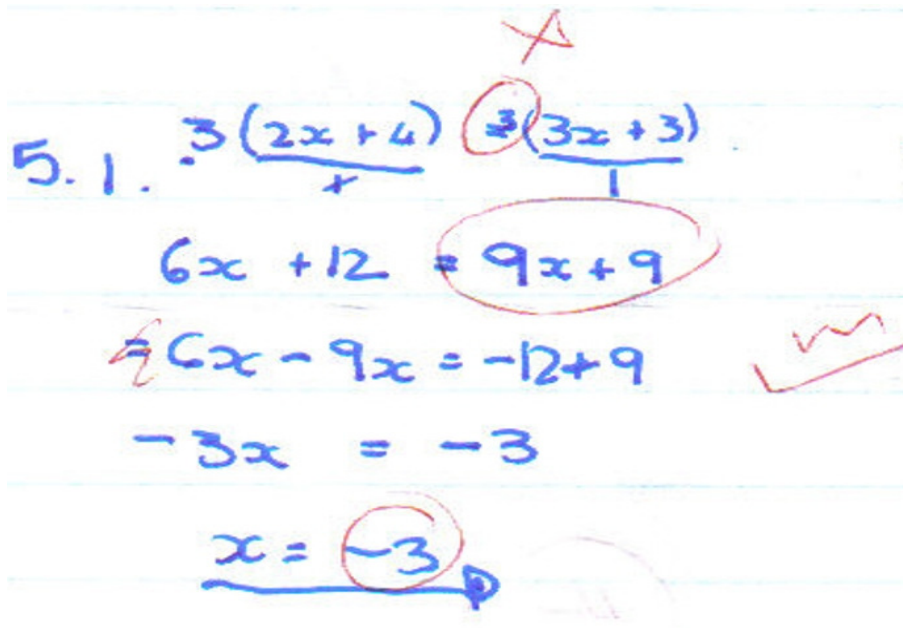 5.1. 3(2x + 4) = 3(3x + 3)
1 1
6x + 12 = 9x + 9
= 6x - 9x = -12 + 9
-3x = -3
x = -3
m